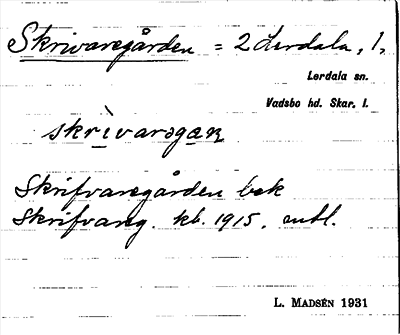 Skrivaregården = 2 Lerdala, 1.
Lerdala sn.
Vadsbo hd. Skar. l.
skrìvaregaɳ
Skrifvaregården bek
Skrifvareg. kb. 1915. mtl.
L. MADSÉN 1931